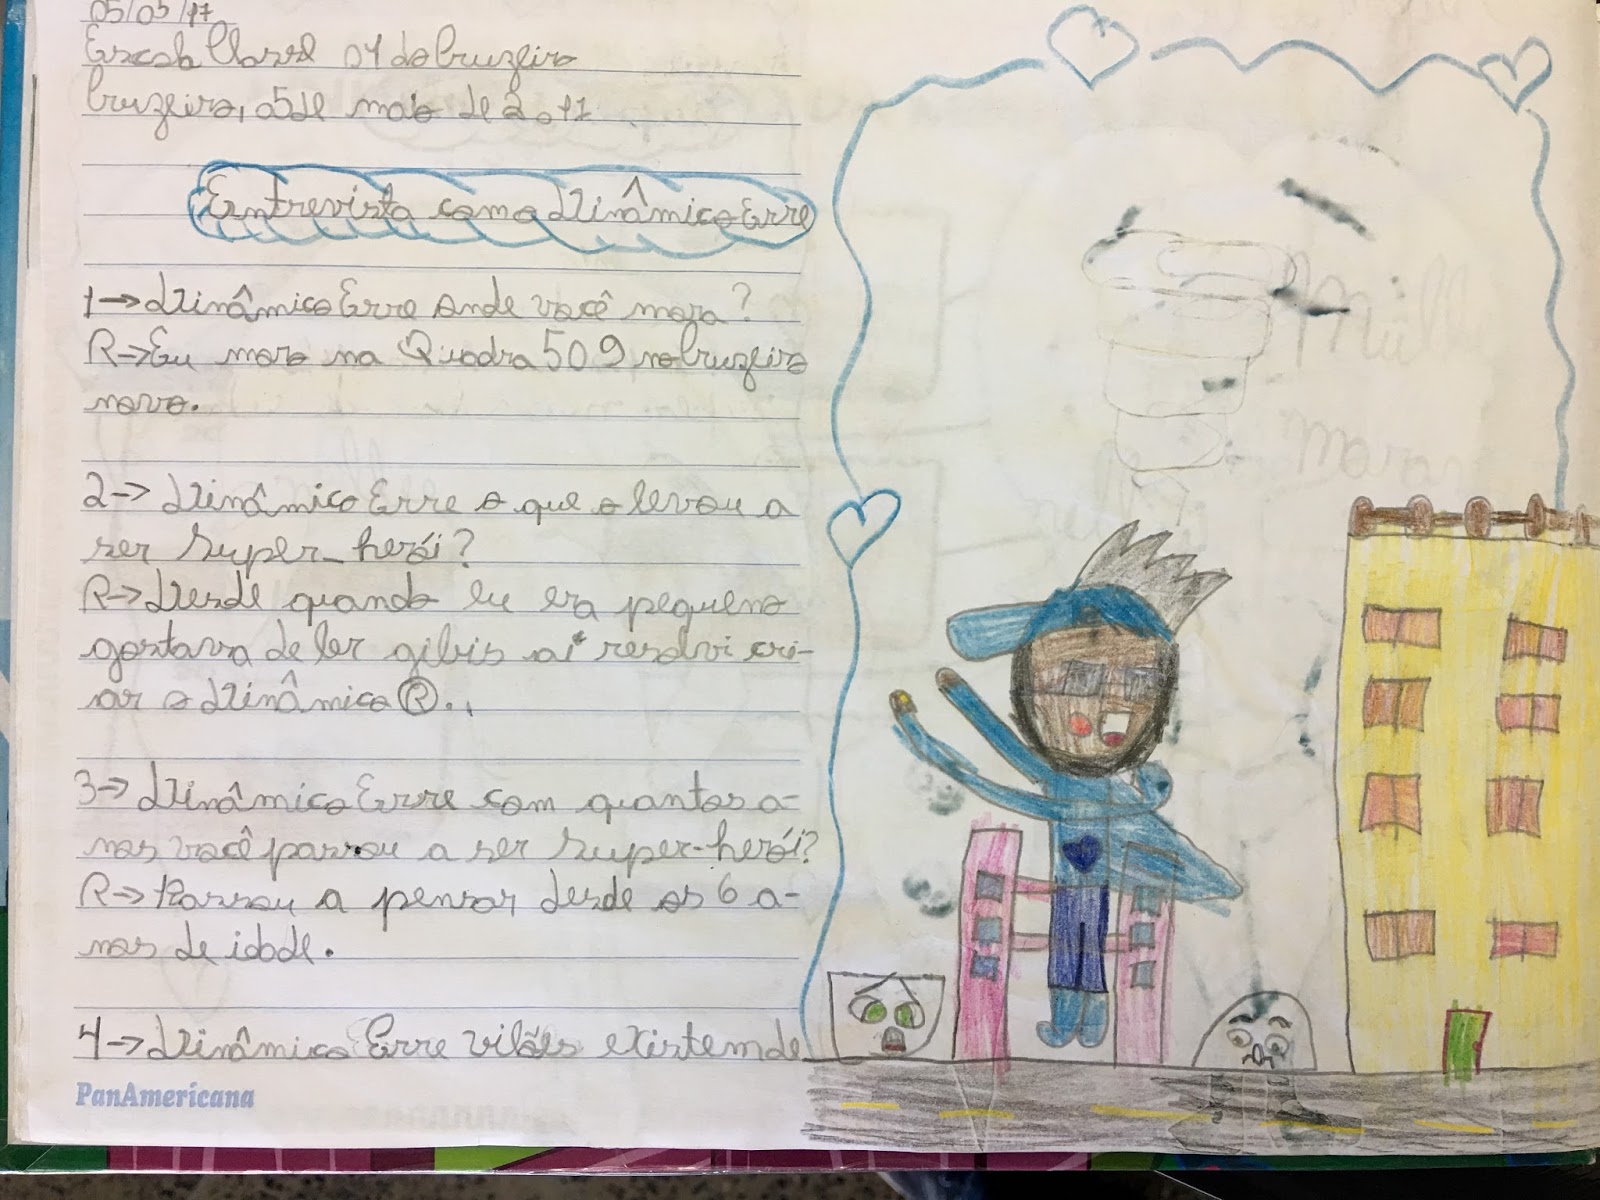 05/05/17
Escola Classe 04 do Cruzeiro
Cruzeiro, 05 de maio de 2017
Entrevista como Dinâmico Erre
1→ Dinâmico Erre onde você mora?
R→ Eu moro na Quadra 509 no Cruzeiro
novo.
2→ Dinâmico Erre o que o levou a
ser Super-herói?
R→ Desde quando eu era pequeno
gostava de ler gibis ai resolvi cri-
ar o Dinâmico Ⓡ.
3→ Dinâmico Erre com quantos a-
nos você passou a ser Super-herói?
R→ Passou a pensar desde os 6 a-
nos de idade.
4→ Dinâmico Erre vilões existem de
PanAmericana